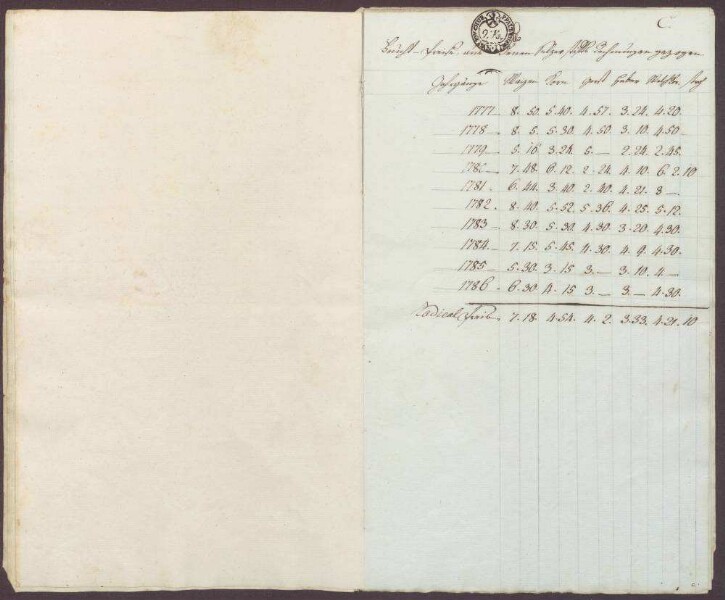 C.
Frucht-Preise aus denen Rechnungen gezogen
Jahrgänge Waizen Korn Gerst Haber
1777 8. 50. 5. 40. 4. 57. 3. 24. 4. 20.
1778 8. 5. 5. 30. 4. 50. 3. 10. 4. 50.
1779 5. 16. 3. 24. 5. — 2. 24. 2. 45.
7. 48. 6. 12. 2. 24. 4. 10. 6. 2. 10
1781. 6. 44. 3. 40. 2. 40. 4. 21. 3 —
1782. 8. 40. 5. 52. 5. 36. 4. 25. 5. 12.
1783 8. 30. 5. 30. 4. 30. 3. 20. 4. 30.
1784. 7. 15. 5. 45. 4. 30. 4. 9. 4. 30.
1785 5. 30. 3. 15 3. — 3. 10. 4 —
1786. 6. 30. 4. 15 3. — 3. — 4. 30.
Radical Preis. 7. 18. 4. 54. 4. 2. 3. 33. 4. 21. 10